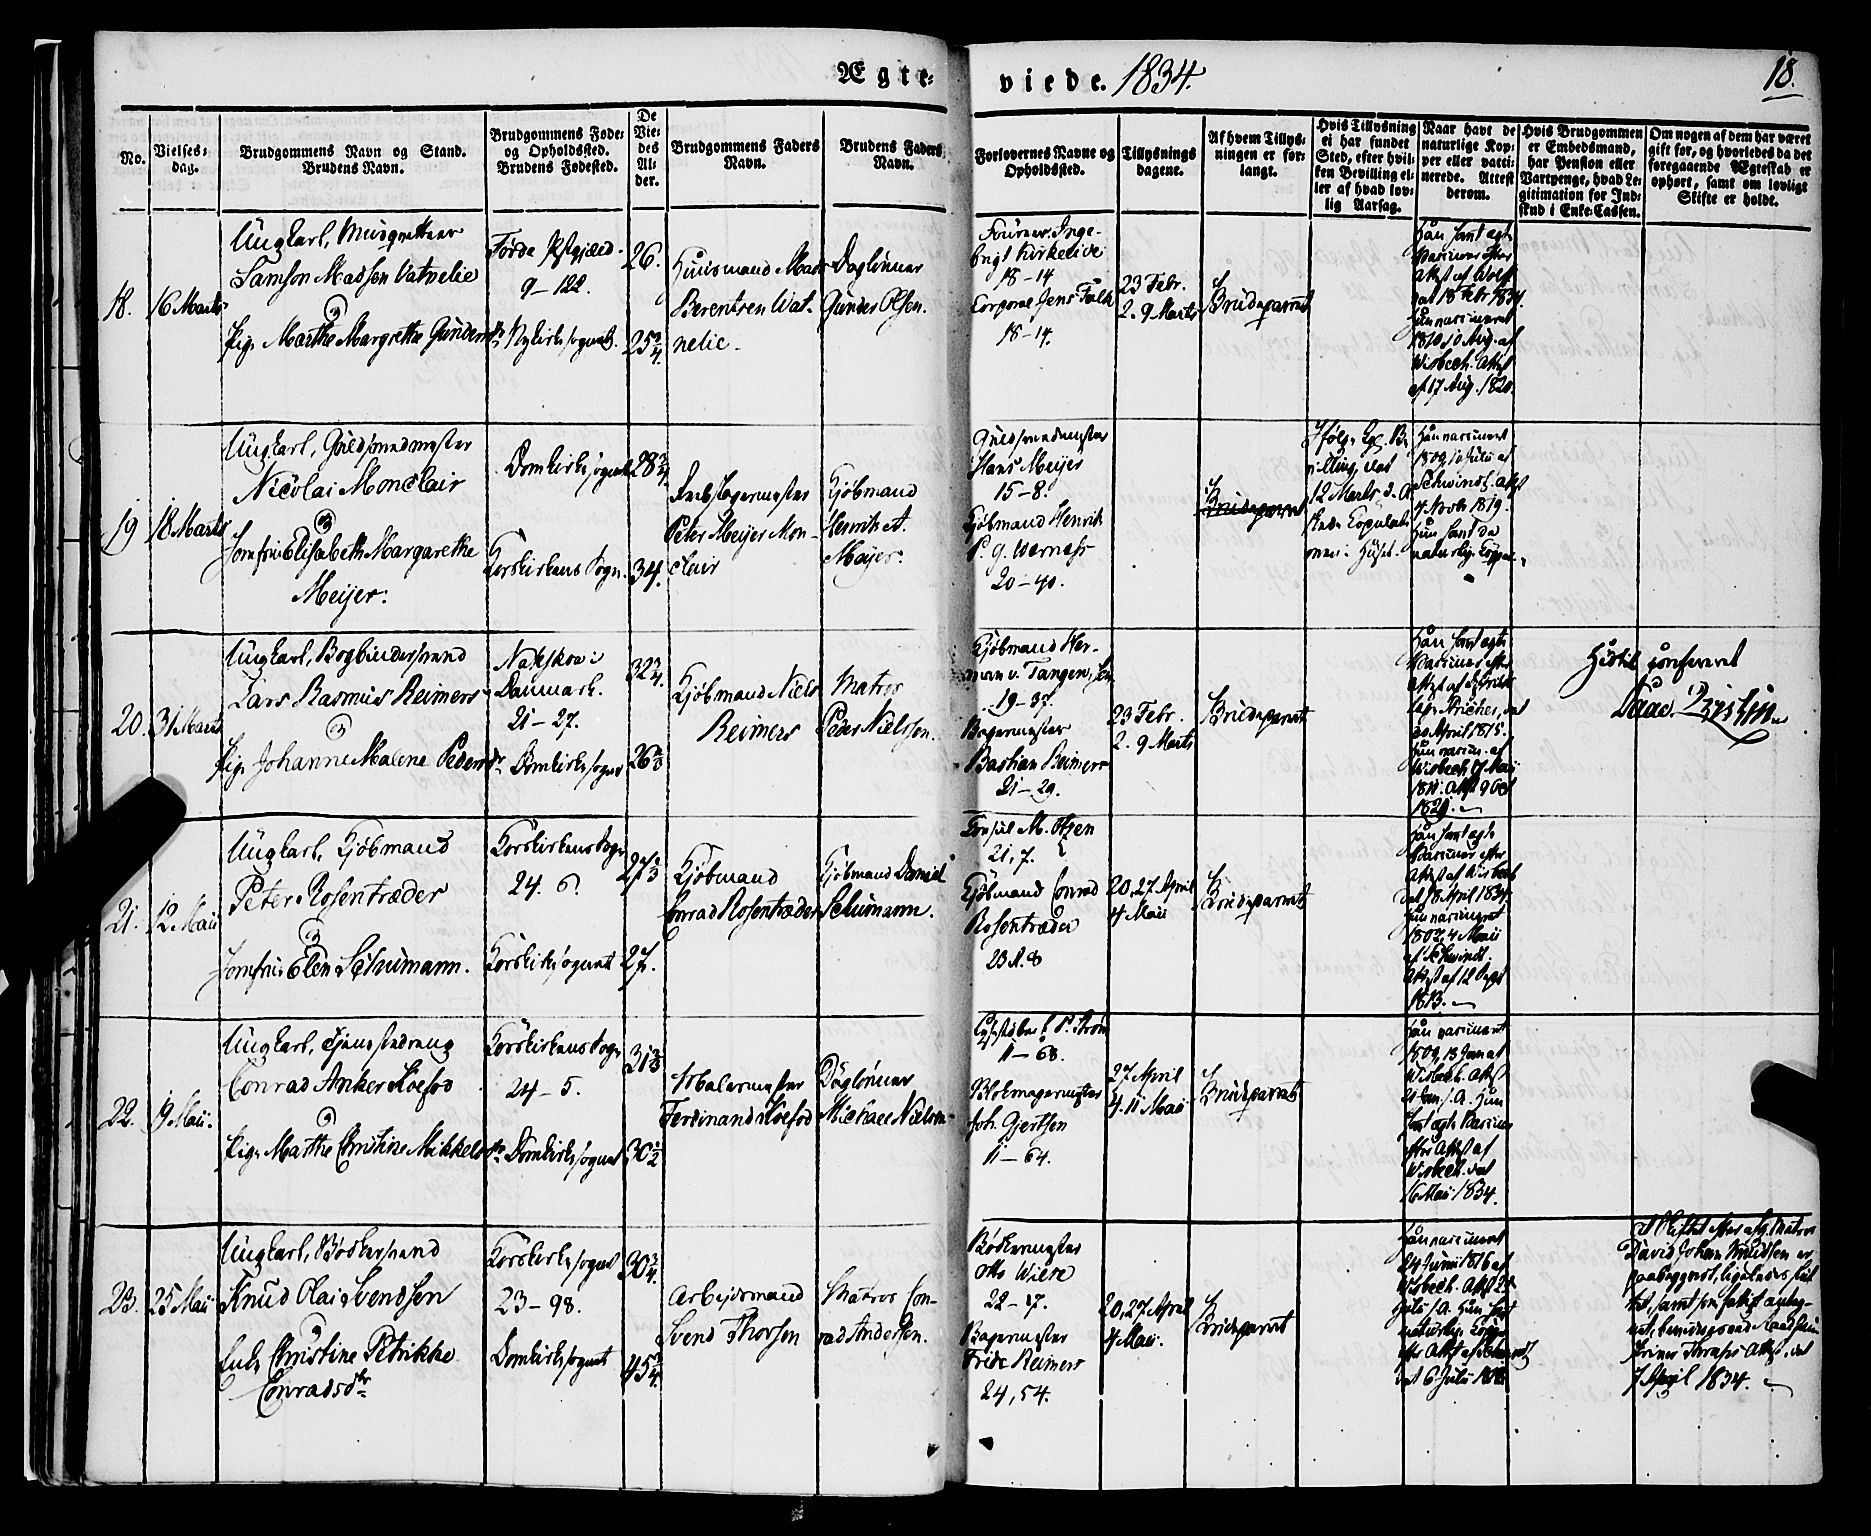 Ægte-
viede. 1834.
18.
No.
Vielses-
dag.
Brudgommens Navn og Stand.
Brudens Navn.
Brudgommens Føde-
og Opholdssted.
Brudens Fødested.
De
Vie-
des
Al-
der.
Brudgommens Faders
Navn.
Brudens Faders
Navn.
Forlovernes Navne og
Opholdssted.
Tillysnings
dagene.
Af hvem Tillys-
ningen er for-
langt.
Hvis Tillysning
ei har fundet
Sted, efter hvil-
ken Bevilling el-
ler af hvad lov-
lig Aarsag.
Naar havt de
naturlige Kop-
per eller vacci-
nerede. Attest
derom.
Hvis Brudgommen
er Embedsmand,
har Pension eller
Vartpenge, hvad Le-
gitimation for Ind-
skud i Enke-Cassen.
Om nogen af dem har været
gift før, og hvorledes da det
foregaaende Ægteskab er
ophørt, samt om lovligt
Skifte er holdt.
18.
16 Marts
Ungkarl, Musqvetteer
Samson Madsen Vatnelie
Pige Marthe Margrethe Gundersdr
Førde Præstgjæld
9-122.
Nykirkesognet.
26.
25 3/4
Huusmand Mads
Berentsen Vat-
nelie.
Dagleuner
Gunder Olsen.
Inge-
brigt Kirkeeide
18-14
Corporal Jens Falk
18-14.
23 Febr.
2. 9 Marts
Brudeparret
Attest af Wolff
dat 18 Febr 1834.
Hun vaccineret
1810 10 Aug. af
Wisbech. Attest
af 17 Aug. 1820
19
18 Marts
Ungkarl, Guldsmedmester
Nicolai Monclair
Jomfru Elisabeth Margarethe
Meijer.
Domkirkesognet
Korskirkens Sogn.
28 3/4
34.
Peter Meijer Mon-
clair
Kjøbmand
Henrik A.
Meijer.
Guldsmedmester
Hans Meijer
15-8.
Kjøbmand Henrik
P. G. Wernefs
20-40.
Brudeparret
Ifølge Kgl. Be
villing, dat
12 Marts d. A.
Huset.
Han vaccineret
1809, 10 Julii af
Schwindt. Attest
4 Novb 1819.
Hun havt de
naturlige Kopper.
20.
31 Marts
Ungkarl, Bogbindersvend
Lars Rasmus Reimers
Pige Johanne Malene Pedersdr
Nakskov i
Danmark.
21-27.
Domkirkesognet
32 3/4
26
Kjøbmand Niels
Reimers
Matros
Peder Nielssen.
Kjøbmand Her-
man v. Tangen, Sen
19-37.
Bagermester
Bastian Reimers
21-29.
23 Febr.
2. 9 Marts
Brudeparret
Han havt ægte
Vacciner efter
20 April 1815.
Hun vaccin. af
Wisbech 17 Maii
1811. Attest 9 Oct
1820.
Hidtil confereret
21.
12 Maii
Ungkarl, Kjøbmand
Peter Rosentræder
Jomfru Elen Schumann.
Korskirkens Sogn
24. 6.
Korskirkesognet
27
27.
Kjøbmand
Conrad Rosentræder
Kjøbmand Daniel
Schumann.
Consul M. Krohn
21, 7.
Kjøbmand Conrad
Rosentræder
23 A. 8
20, 27 April
4 Maii
Brudeparret
Han havt ægte
Vacciner efter
Attest af Wisbech
dat 18 April 1834.
Hun vaccineret
1807, 4 Maii
af Schwindt.
Attest af 12 Sept
1813.
22.
19 Maii.
Ungkarl, Tjenestedreng
Conrad Anker Koefod
Pige Marthe Christine Mikkelsdr
Korskirkens Sogn
24-5.
Domkirkesognet
31
30 1/2
Malermester
Ferdinand Koefod
Dagleuner
Michael Nielsen
11-68.
Blokmagermester
Joh. Gjertsen
11-64.
27 April
4. 11 Maii
Brudeparret
Han vaccineret
1809, 13 Jan af
Wisbech. Attest
Hun
havt ægte Vacciner
efter Attest af
Wisbech dat
16 Maii 1834.
23.
25 Maii
Ungkarl, Bødkersvend
Knud Olai Svendsen
Enke Christine Petrikke
Conradsdtr
Korskirkesognet
23-98.
Domkirkesognet
30 3/4.
45 3/4.
Arbejdsmand
Svend Thorsen
Matros Con-
rad Andersen.
Bødkermester
Otto Wiere
22-17.
Bagermester
Fride Reimers
24, 54.
20, 27 April
4 Maii.
Brudeparret
Han vaccineret
24 Junii 1816 af
Wisbech. Attest 28
Julii s. A. Hun havt
naturlige Kopper
efter Attest af
dat 6 Julii
At Skiftet efter afg. Matros
David Johan Knudsen er
paabegyndt, ligeledes slut
tet, samt
Attest, dat
7 April 1834.